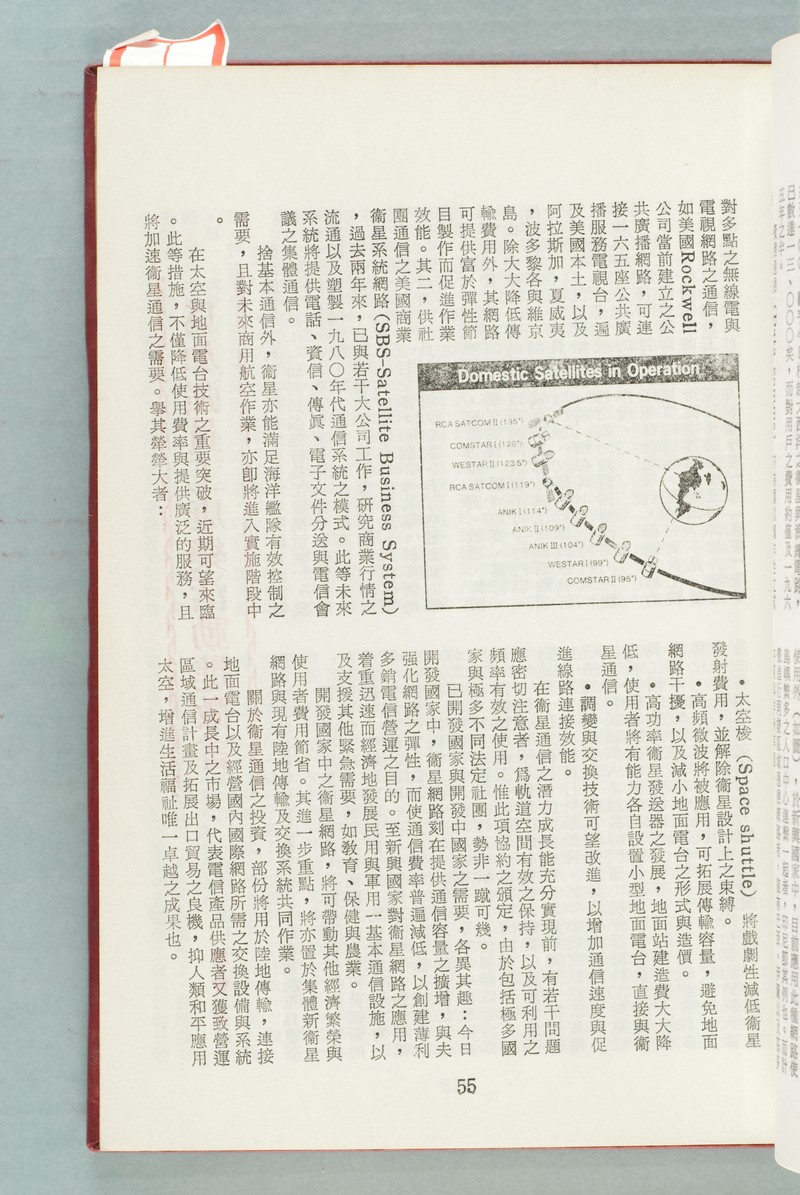 對多點之無線電與
電視網路之通信，
如美國Rockwell
公司當前建立之公
共廣播網路，可連
接一六五座公共廣
播服務電視台，遍
及美國本土，以及
阿拉斯加，夏威夷
，波多黎各與維京
島。除大大降低傳
輸費用外，其網路
可提供富於彈性節
目製作而促進作業
效能。其二，供社
團通信之美國商業
衛星系統網路(SBS-Satellite Business System)
，過去兩年來，已與若干大公司工作，研究商業行情之
流通以及塑製一九八〇年代通信系統之模式。此等未來
系統將提供電話、資信、傳眞、電子文件分送與電信會
議之集體通信。
捨基本通信外，衛星亦能滿足海洋艦隊有效控制之
需要，且對未來商用航空作業，亦卽將進入實施階段中
。
在太空與地面電台技術之重要突破，近期可望來臨
。此等措施，不僅降低使用費率與提供廣泛的服務，且
將加速衛星通信之需要。擧其犖犖大者：
Domestic Satellites in Operation
RCA SATCOM II (135°)
COMSTAR I (128°)
WESTAR II (123.5°)
RCA SATCOM I (119°)
ANIK I (114°)
ANIK II (109°)
ANIK III (104°)
WESTAR I (99°)
COMSTAR II (95°)
•太空梭 (Space shuttle) 將戲劇性減低衛星
發射費用，並解除衛星設計上之束縛。
•高頻微波將被應用，可拓展傳輸容量，避免地面
網路干擾，以及減小地面電台之形式與造價。
•高功率衛星發送器之發展，地面站建造費大大降
低，使用者將有能力各自設置小型地面電台，直接與衛
星通信。
•調變與交換技術可望改進，以增加通信速度與促
進線路連接效能。
在衛星通信之潛力成長能充分實現前，有若干問題
應密切注意者，爲軌道空間有效之保持，以及可利用之
頻率有效之使用。惟此項協約之頒定，由於包括極多國
家與極多不同法定社團，勢非一蹴可幾。
已開發國家與開發中國家之需要，各異其趣：今日
開發國家中，衛星網路刻在提供通信容量之擴增，與夫
强化網路之彈性，而使通信費率普遍減低，以創建薄利
多銷電信營運之目的。至新興國家對衛星網路之應用，
着重迅速而經濟地發展民用與軍用一基本通信設施，以
及支援其他緊急需要，如敎育、保健與農業。
開發國家中之衛星網路，將可帶動其他經濟繁榮與
使用者費用節省。其進一步重點，將亦置於集體新衛星
網路與現有陸地傳輸及交換系統共同作業。
關於衛星通信之投資，部份將用於陸地傳輸，連接
地面電台以及經營國內國際網路所需之交換設備與系統
。此一成長中之市場，代表電信產品供應者又獲致營運
區域通信計畫及拓展出口貿易之良機，抑人類和平應用
太空，增進生活福祉唯一卓越之成果也。
55